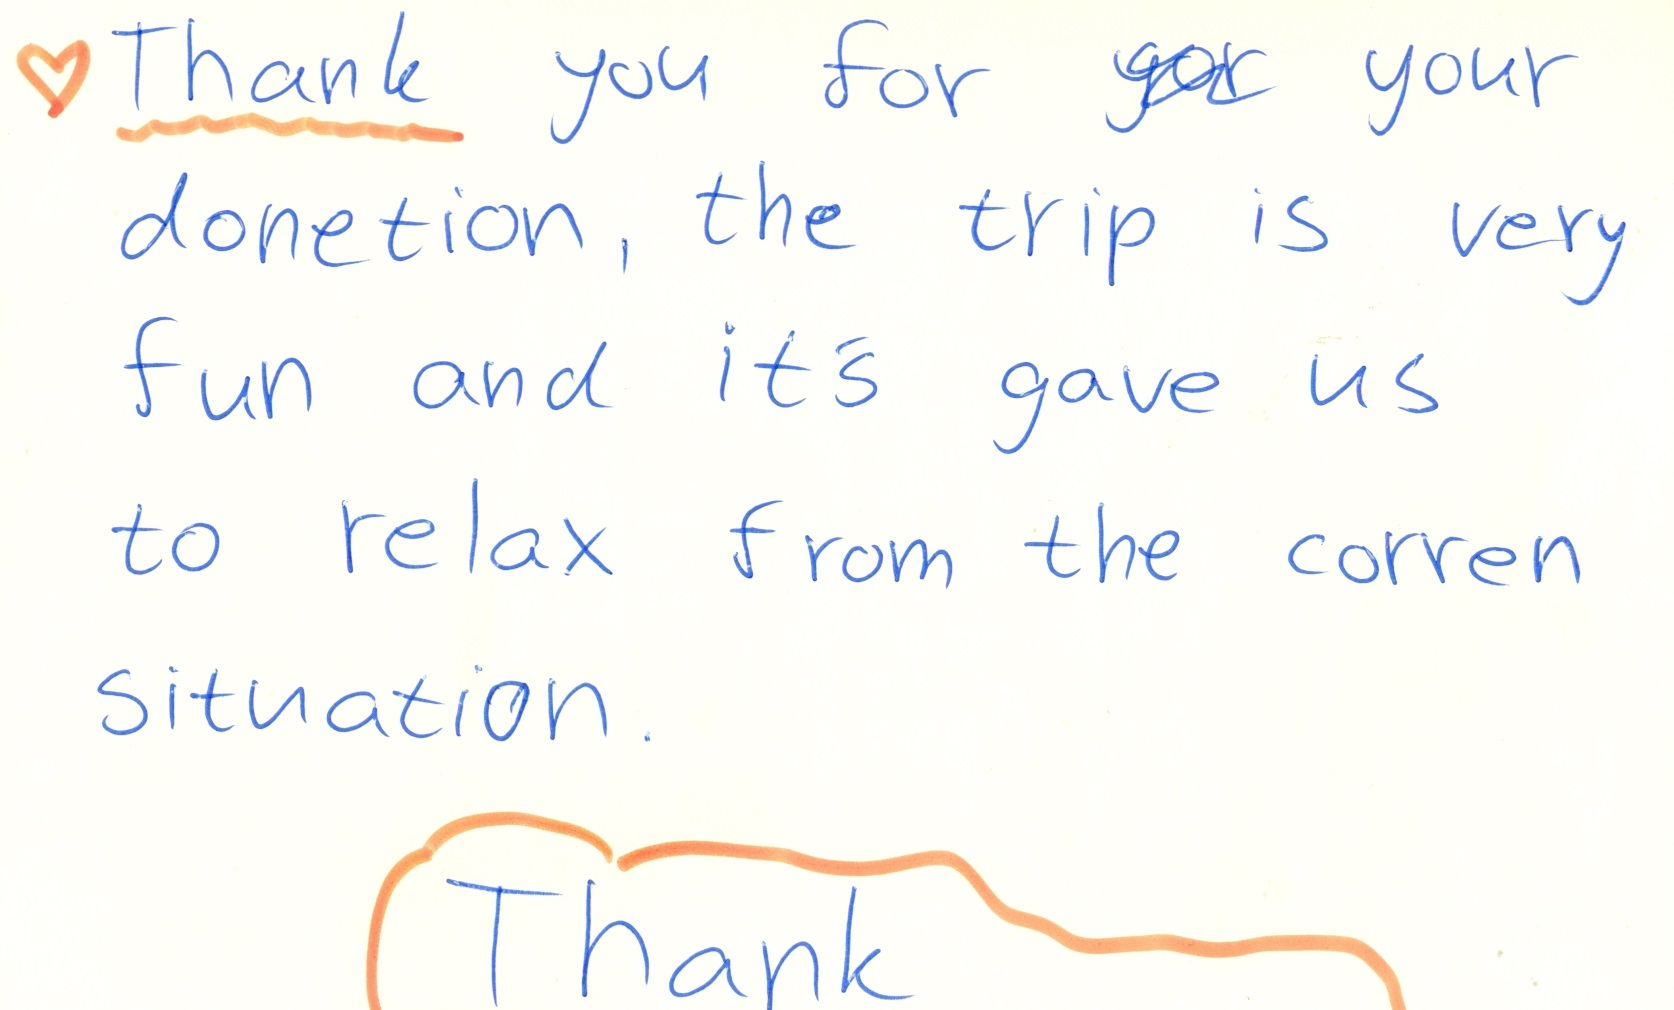 Thank you for your
donetion, the trip is very
fun and it's gave us
to relax from the corren
situation.
Thank